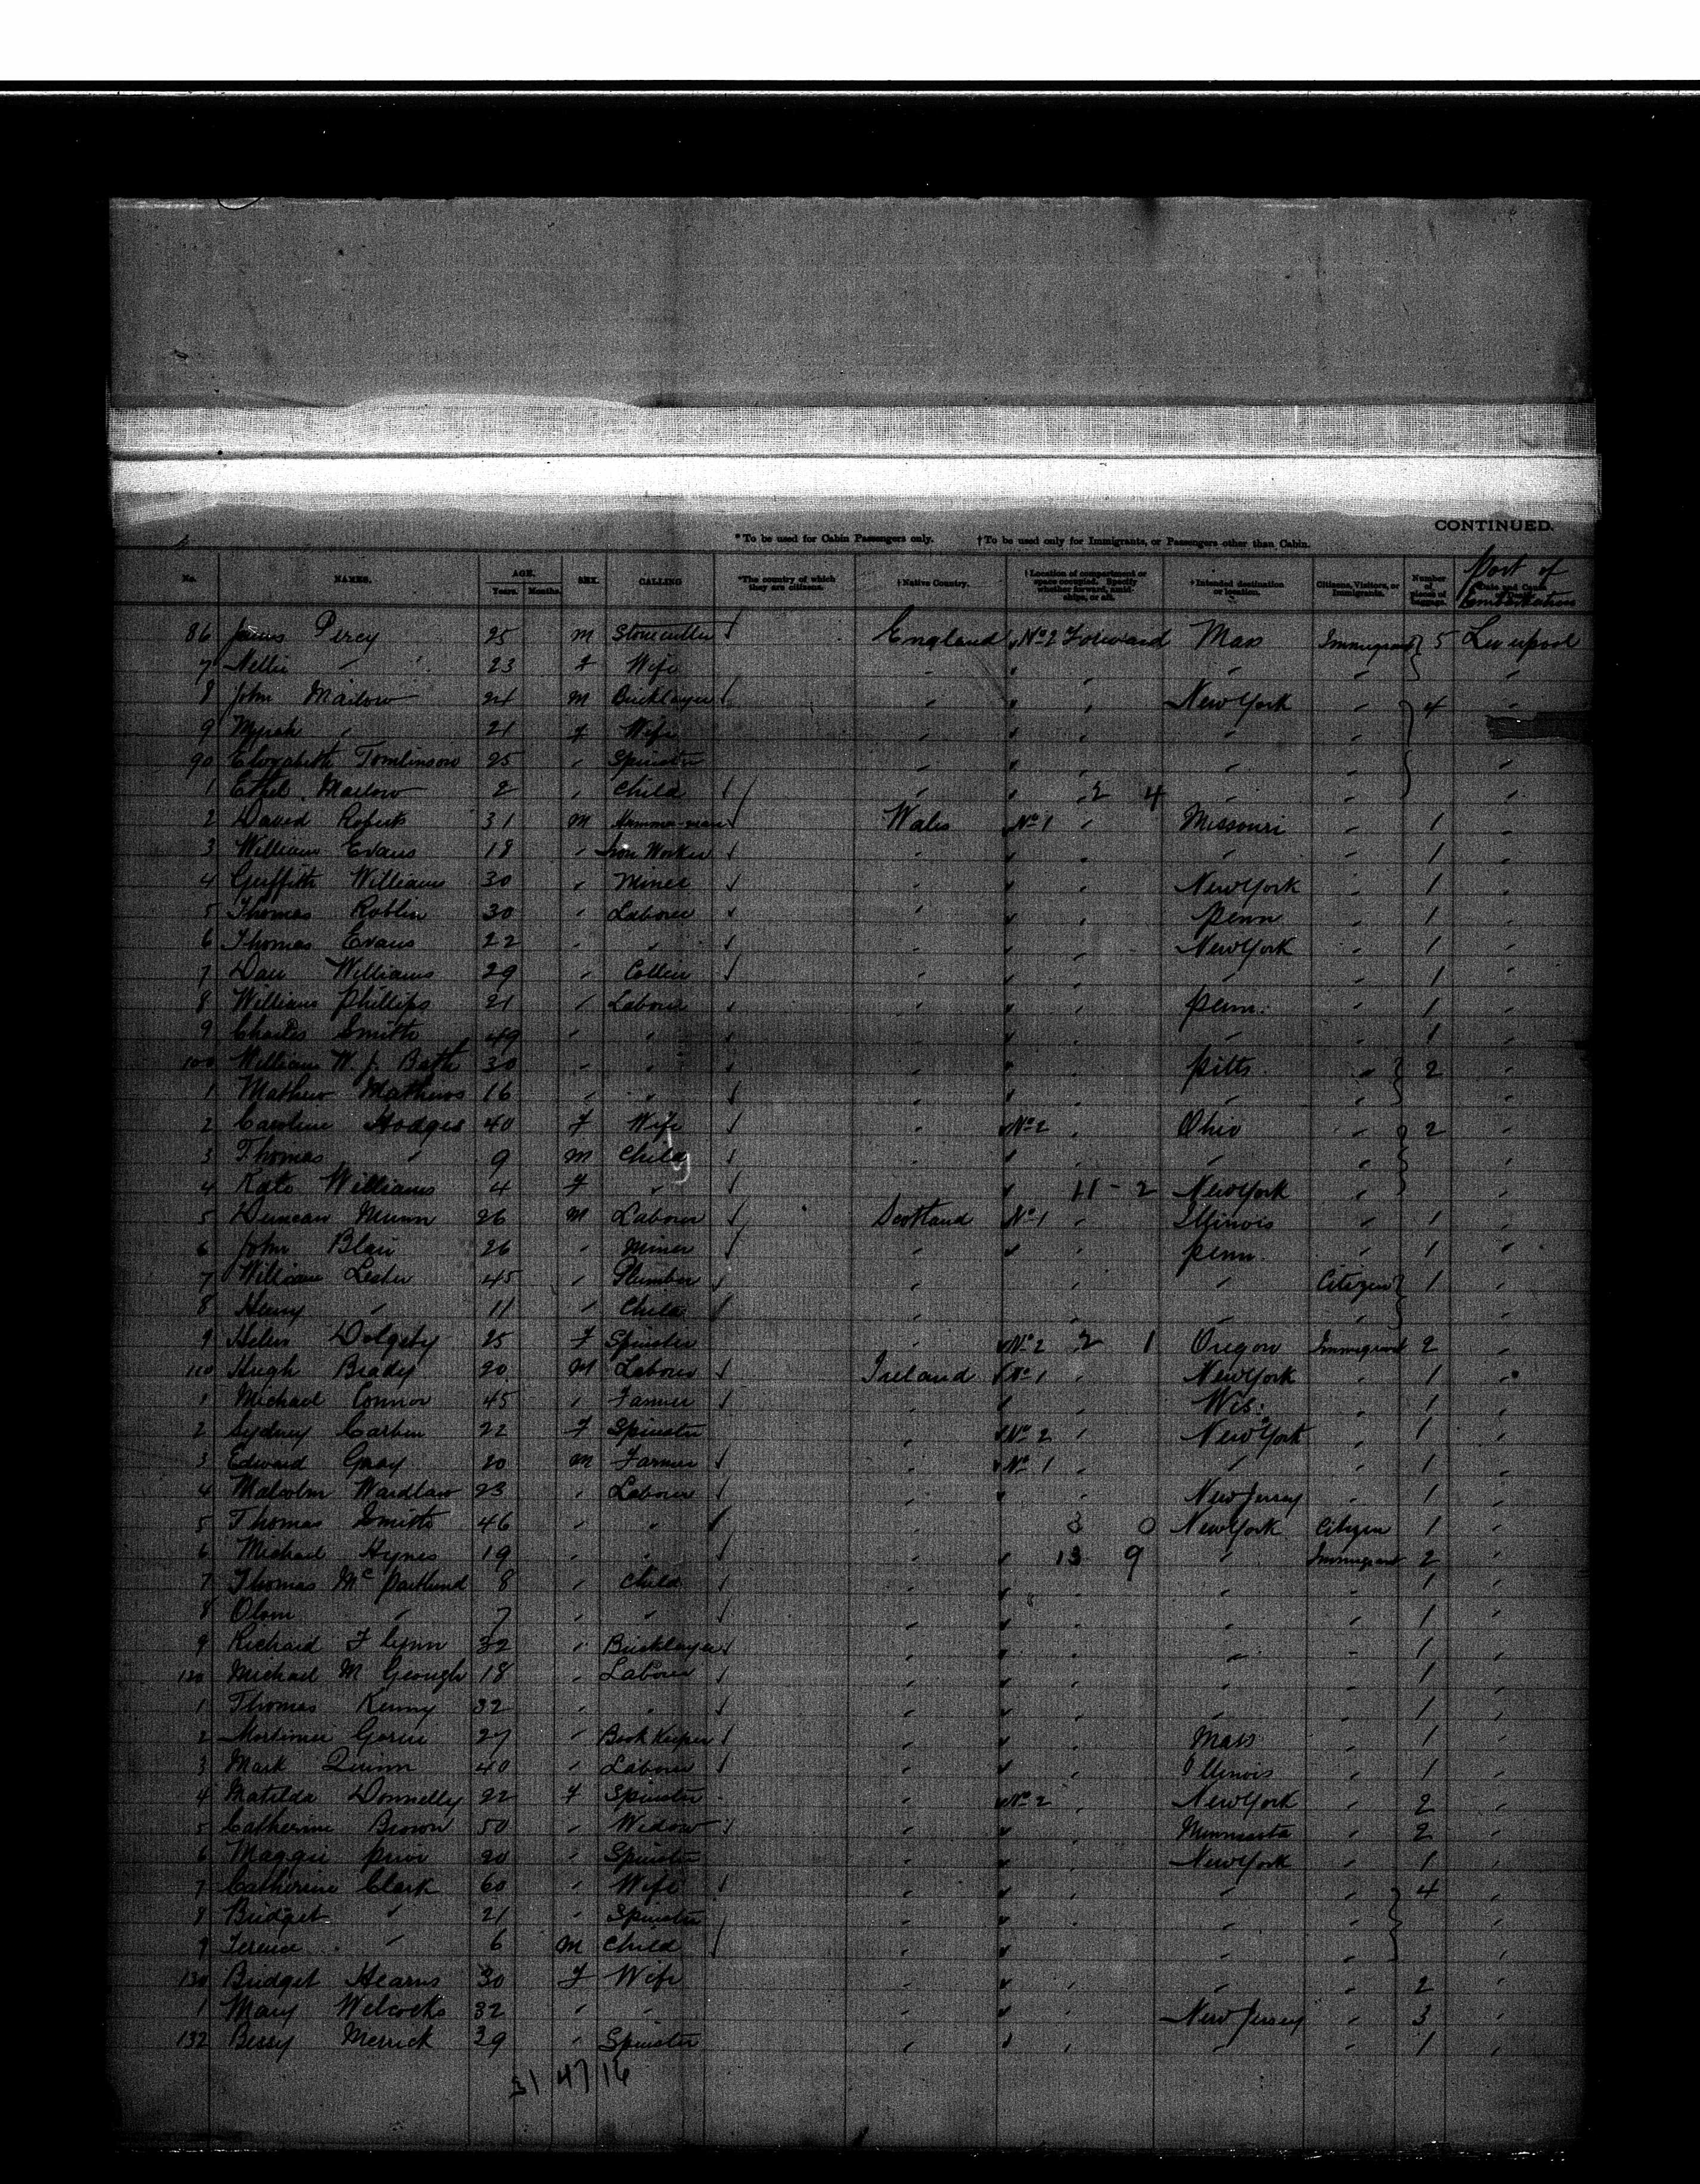 CONTINUED.
*To be used for Cabin Passengers only. †To be used only for Immigrants, or Passengers other than Cabin.
No. NAMES. AGE. Years. Months. SEX. CALLING *The country of which they are citizens. †Native Country. †Location of compartment or space occupied. Specify whether forward, amidships, or aft. †Intended destination or location. Citizens, Visitors, or Immigrants. Number of pieces of baggage. Port of Embarkation
86 James Percy 25 M Stonecutter England No 2 Forward Mass Immigrant 5 Liverpool
7 Nellie " 23 F Wife " " " " "
8 John Marlow 24 M Bricklayer " " New York " 4 "
9 " 21 F Wife " " " "
90 Elizabeth Tomlinson 25 " Spinster " " " " "
1 Ethel Marlow 2 " Child " 2 4 " " "
2 David Roberts 31 M Hammer-man Wales No 1 " Missouri " 1 "
3 William Evans 18 " Iron Worker " " " " 1 "
4 Griffith Williams 30 " Miner " " New York " 1 "
5 Thomas Roblin 30 " Laborer " " Penn " 1 "
6 Thomas Evans 22 " " " " New York " 1 "
7 Dan Williams 29 " Collier " " " " 1 "
8 William Phillips 21 " Labourer " " Penn. " 1 "
9 Charles Smith 49 " " " " " " 1 "
100 William W. J. Bath 30 " " " " Pitts. " 2 "
1 Mathew Mathews 16 " " " " " " "
2 Caroline Hodges 40 F Wife " No 2 " Ohio " 2 "
3 Thomas " 9 M Child " " " " "
4 Kate Williams 4 F " " 11 - 2 New York " "
5 Duncan Munn 26 M Labourer Scotland No 1 " Illinois " 1 "
6 John Blair 26 " Miner " " Penn. " 1 "
7 William Lester 45 " Plumber " " " Citizen 1 "
8 Henry " 11 " Child " " " "
9 Helen 25 F Spinster " No 2 2 1 Oregon Immigrant 2 "
110 Hugh Brady 20 M Labourer Ireland No 1 " New York " 1 "
1 Michael Connor 45 " Farmer " " Wis. " 1 "
2 Sydney 22 F Spinster " No 2 " New York " 1 "
3 Edward Gray 20 M Farmer " No 1 " " " 1 "
4 Malcolm Wardlaw 23 " Labourer " " New Jersey " 1 "
5 Thomas Smith 46 " " " 3 0 New York Citizen 1 "
6 Michael Hynes 19 " " " 13 9 " Immigrant 2 "
7 Thomas Mc Partlund 8 " Child " " " " 1 "
8 " 7 " " " " " " 1 "
9 Richard Flynn 32 " Bricklayer " " " " 1 "
120 Michael Mc Geough 18 " Labourer " " " " 1 "
1 Thomas Kenny 32 " " " " " " 1 "
2 Mortimer 27 " Book Keeper " " Mass " 1 "
3 Mark Quinn 40 " Labourer " " Illinois " 1 "
4 Matilda Donnelly 22 F Spinster " No 2 " New York " 2 "
5 Catherine Brown 50 " Widow " " Minnesota " 2 "
6 Maggie 20 " Spinster " " New York " 1 "
7 Catherine Clark 60 " Wife " " " " 4 "
8 Bridget " 21 " Spinster " " " " "
9 Terence " 6 M Child " " " " "
130 Bridget Hearns 30 F Wife " " " " 2 "
1 Mary Welcocks 32 " " " " New Jersey " 3 "
132 Bessy Merrick 29 " Spinster " " " " 1 "
31 47 16